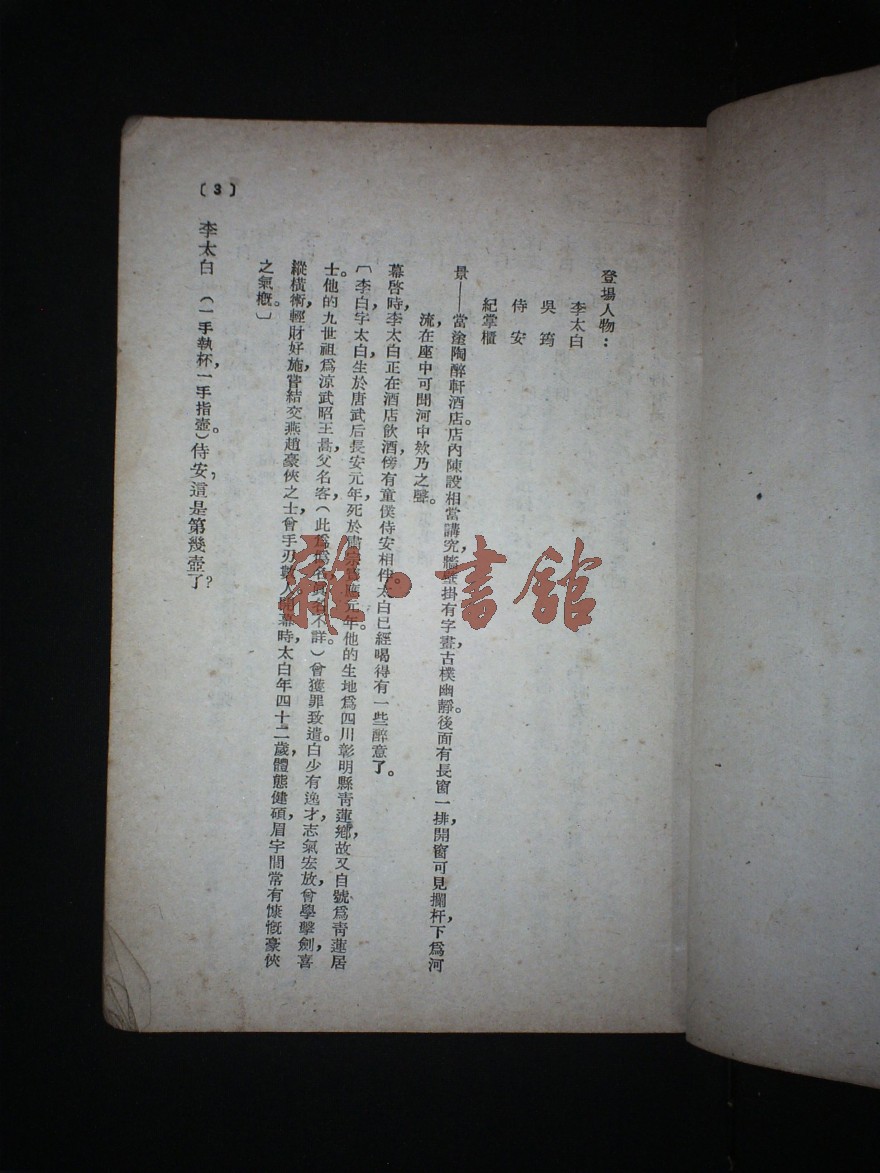 登場人物：
李太白
吳筠
侍安
紀掌櫃
景——當塗陶醉軒酒店。店內陳設相當講究，牆壁掛有字畫，古樸幽靜。後面有長窗一排，開窗可見攔杆，下爲河
流，在座中可聞河中欸乃之聲。
幕啓時，李太白正在酒店飲酒，傍有童僕侍安相伴。太白已經喝得有一些醉意了。
〔李白，字太白，生於唐武后長安元年，死於肅宗 元年。他的生地爲四川彰明縣青蓮鄉，故又自號爲青蓮居
士。他的九世祖爲涼武昭王暠，父名客（此爲 名， 名不詳）。曾獲罪致遣。白少有逸才，志氣宏放，曾學擊劍，喜
縱橫術，輕財好施，嘗結交燕趙豪俠之士，曾手刃數人。開幕時，太白年四十二歲，體態健碩，眉宇間常有慷慨豪俠
之氣概。〕
李太白　（一手執杯，一手指壺）侍安，這是第幾壺了？
〔3〕
雜·書館